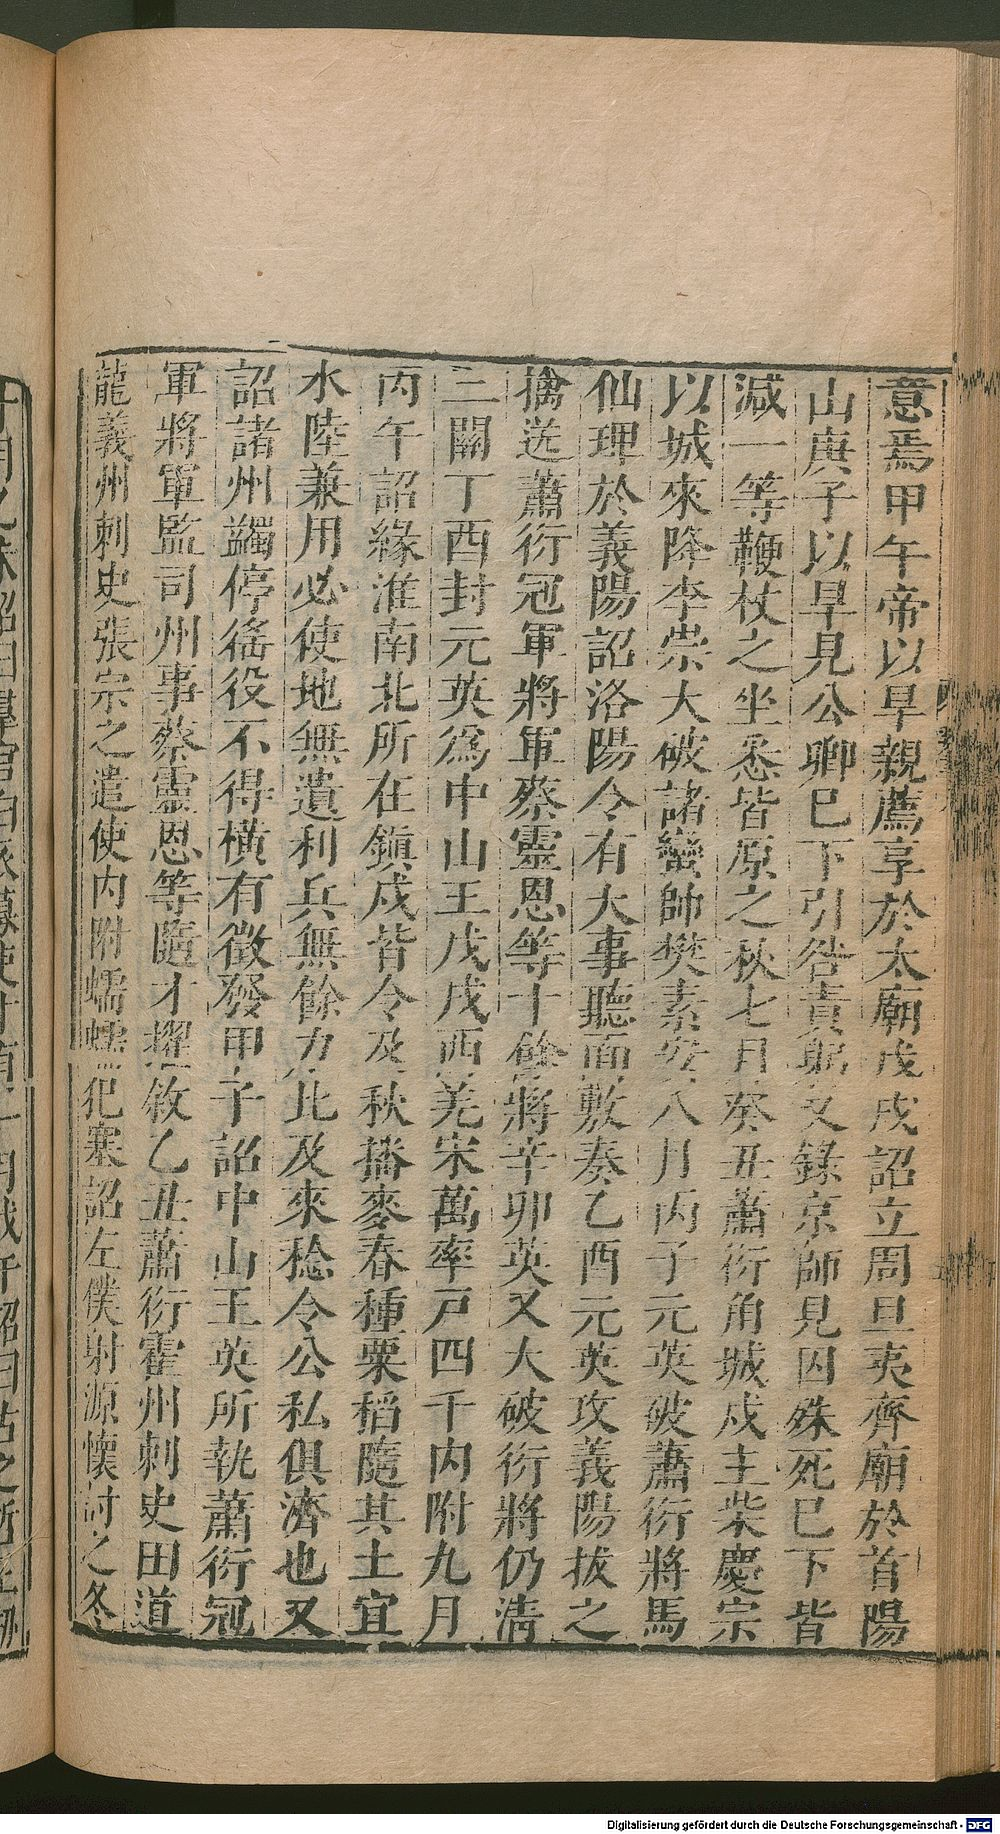 意焉甲午帝以旱親薦享於太廟戊戌詔立周旦夷齊廟於首陽
山庚子以旱見公卿巳下引咎責躬又錄京師見囚殊死巳下皆
減一等鞭杖之坐悉皆原之秋七月癸丑蕭衍角城戍主柴慶宗
以城來降李崇大破諸蠻帥樊素安八月丙子元英破蕭衍將馬
仙琕於義陽詔洛陽令有大事聽面敷奏乙酉元英攻義陽拔之
擒送蕭衍冠軍將軍蔡靈恩等十餘將辛卯英又大破衍將仍淸
三關丁酉封元英爲中山王戊戌西羌宋萬率戸四千内附九月
丙午詔緣淮南北所在鎭戍皆令及秋播麥春種粟稻隨其土宜
水陸兼用必使地無遺利兵無餘力比及來稔令公私俱濟也又
詔諸州蠲停徭役不得橫有徵發甲子詔中山王英所執蕭衍冠
軍將軍監司州事蔡靈恩等隨才擢敘乙丑蕭衍霍州刺史田道
龍義州刺史張宗之遣使内附蠕蠕犯塞詔左僕射源懷討之冬
Digitalisierung gefördert durch die Deutsche Forschungsgemeinschaft - DFG